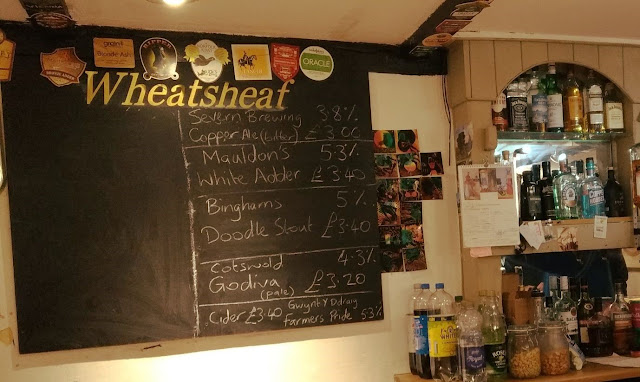 Wheatsheaf
ORACLE
Severn Brewing 3.8%
Copper Ale (bitter) £3.00
Mauldon's 5.3%
White Adder £3.40
Binghams 5%
Doodle Stout £3.40
Cotswold 4.3%
Godiva £3.20
(pale)
Gwynt Y Ddraig
Cider £3.40 Farmers Pride 5.3%